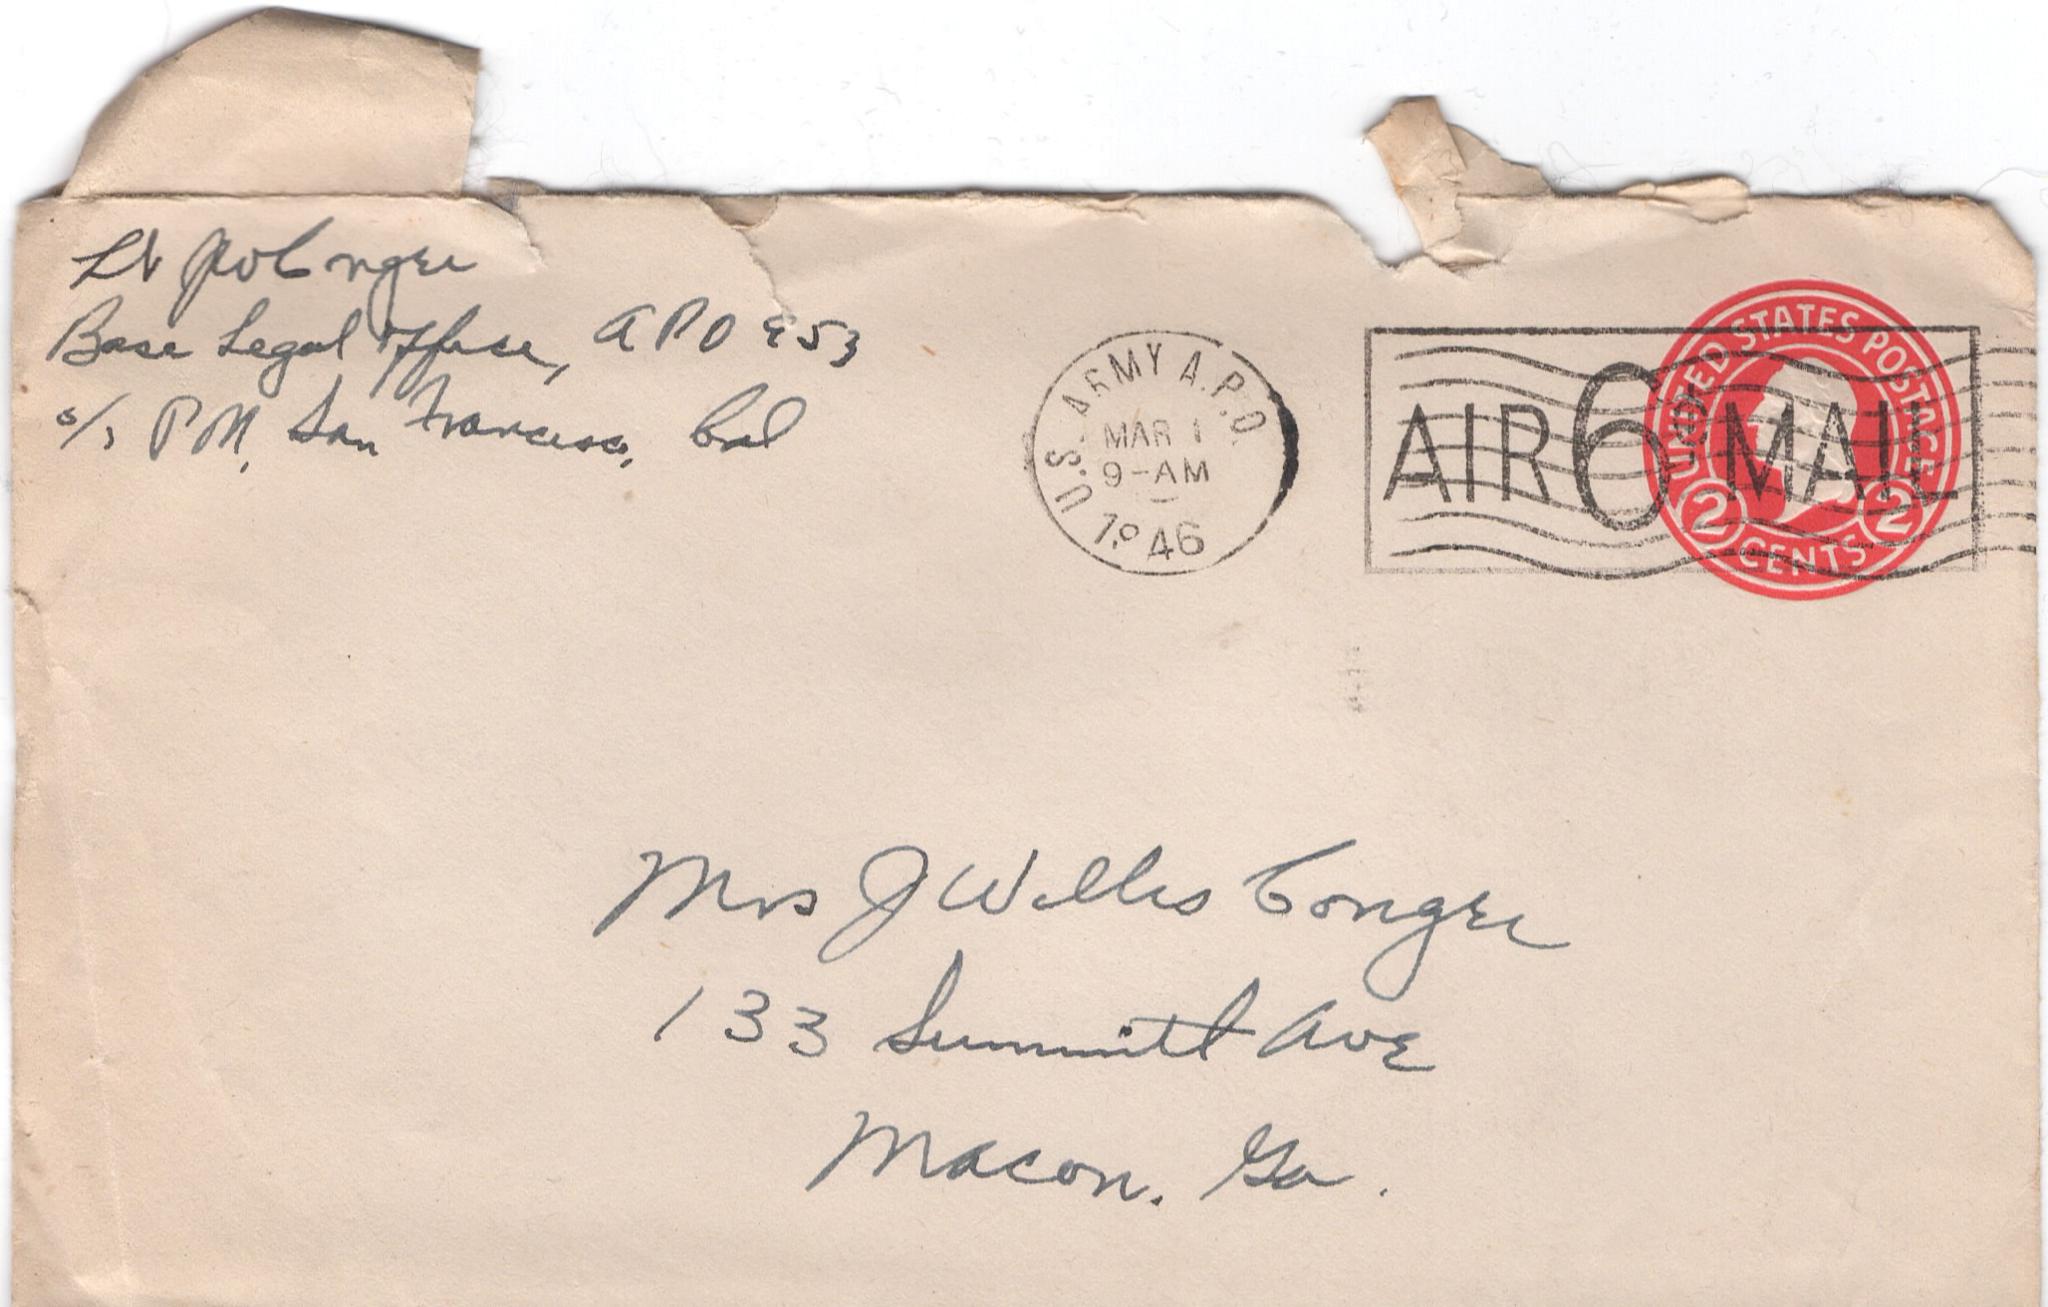 Lt JW Conger
Base Legal Office, APO 953
c/o PM, San Francisco, Cal
U.S. ARMY A.P.O.
MAR 1
9-AM
1946
AIR 6 MAIL
UNITED STATES POSTAGE
2 CENTS 2
Mrs J Willis Conger
133 Summitt Ave
Macon. Ga.